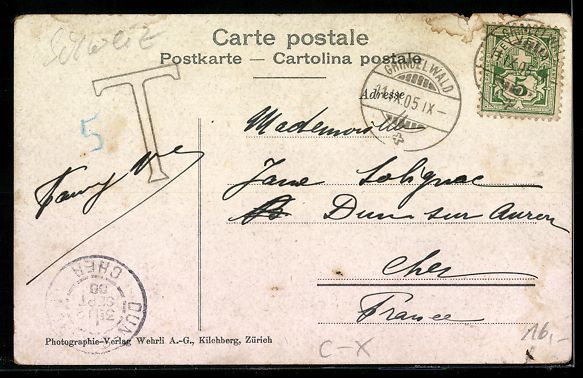 Schweiz
Carte postale
Postkarte — Cartolina postale
GRINDELWALD
11.IX.05 IX-
Adresse
T
5
5
Mademoiselle
Jane Solignac
Dun sur Auron
Cher
France
Fanny
DUN
CHER
SEPT
Photographie-Verlag Wehrli A.-G., Kilchberg, Zürich
C-X
16,-